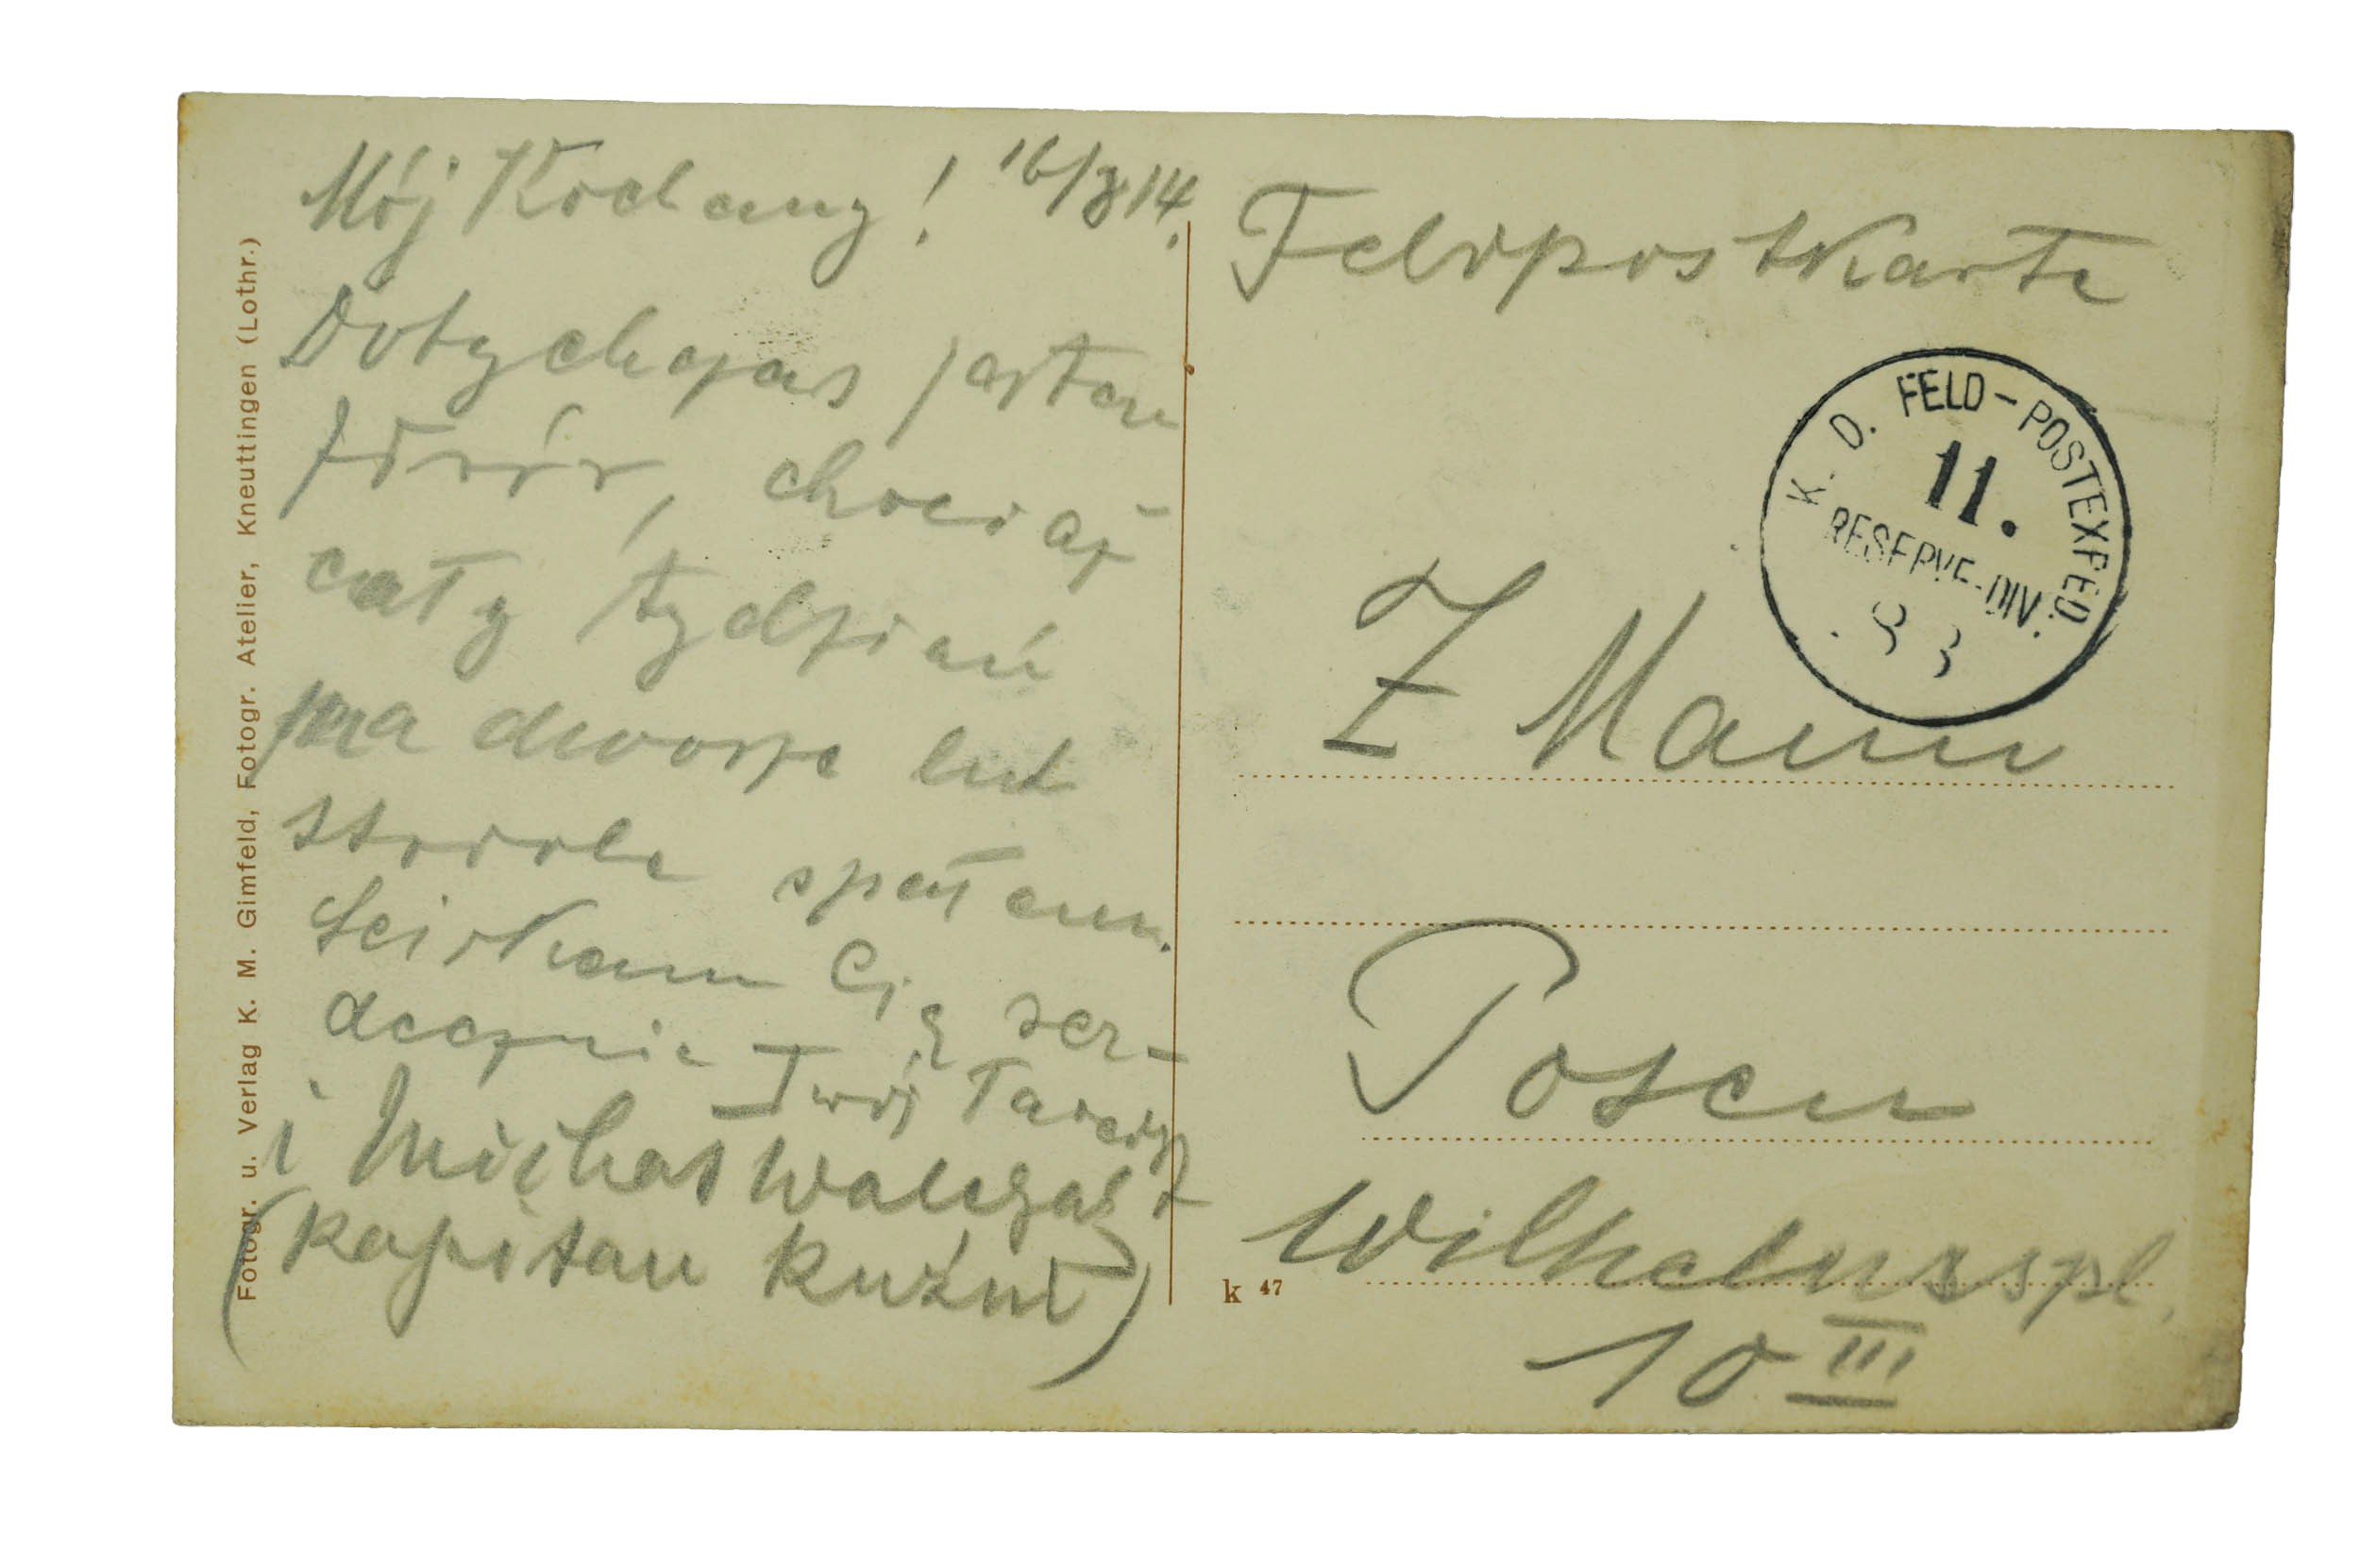 Mój Kochany! 16/8 14.
Dotychczas jestem
zdrów, chociaż
cały tydzień
na dworze lub
stodole spałem.
Ściskam Cię ser-
decznie Twój Tarcyz
i Michał
(Kapitan Kuźni)
Feldpostkarte
K. D. FELD-POSTEXPED.
11.
RESERVE-DIV.
Z Mann
Posen
Wilhelmspl.
10 III
k 47
Fotogr. u. Verlag K. M. Gimfeld, Fotogr. Atelier, Kneuttingen (Lothr.)